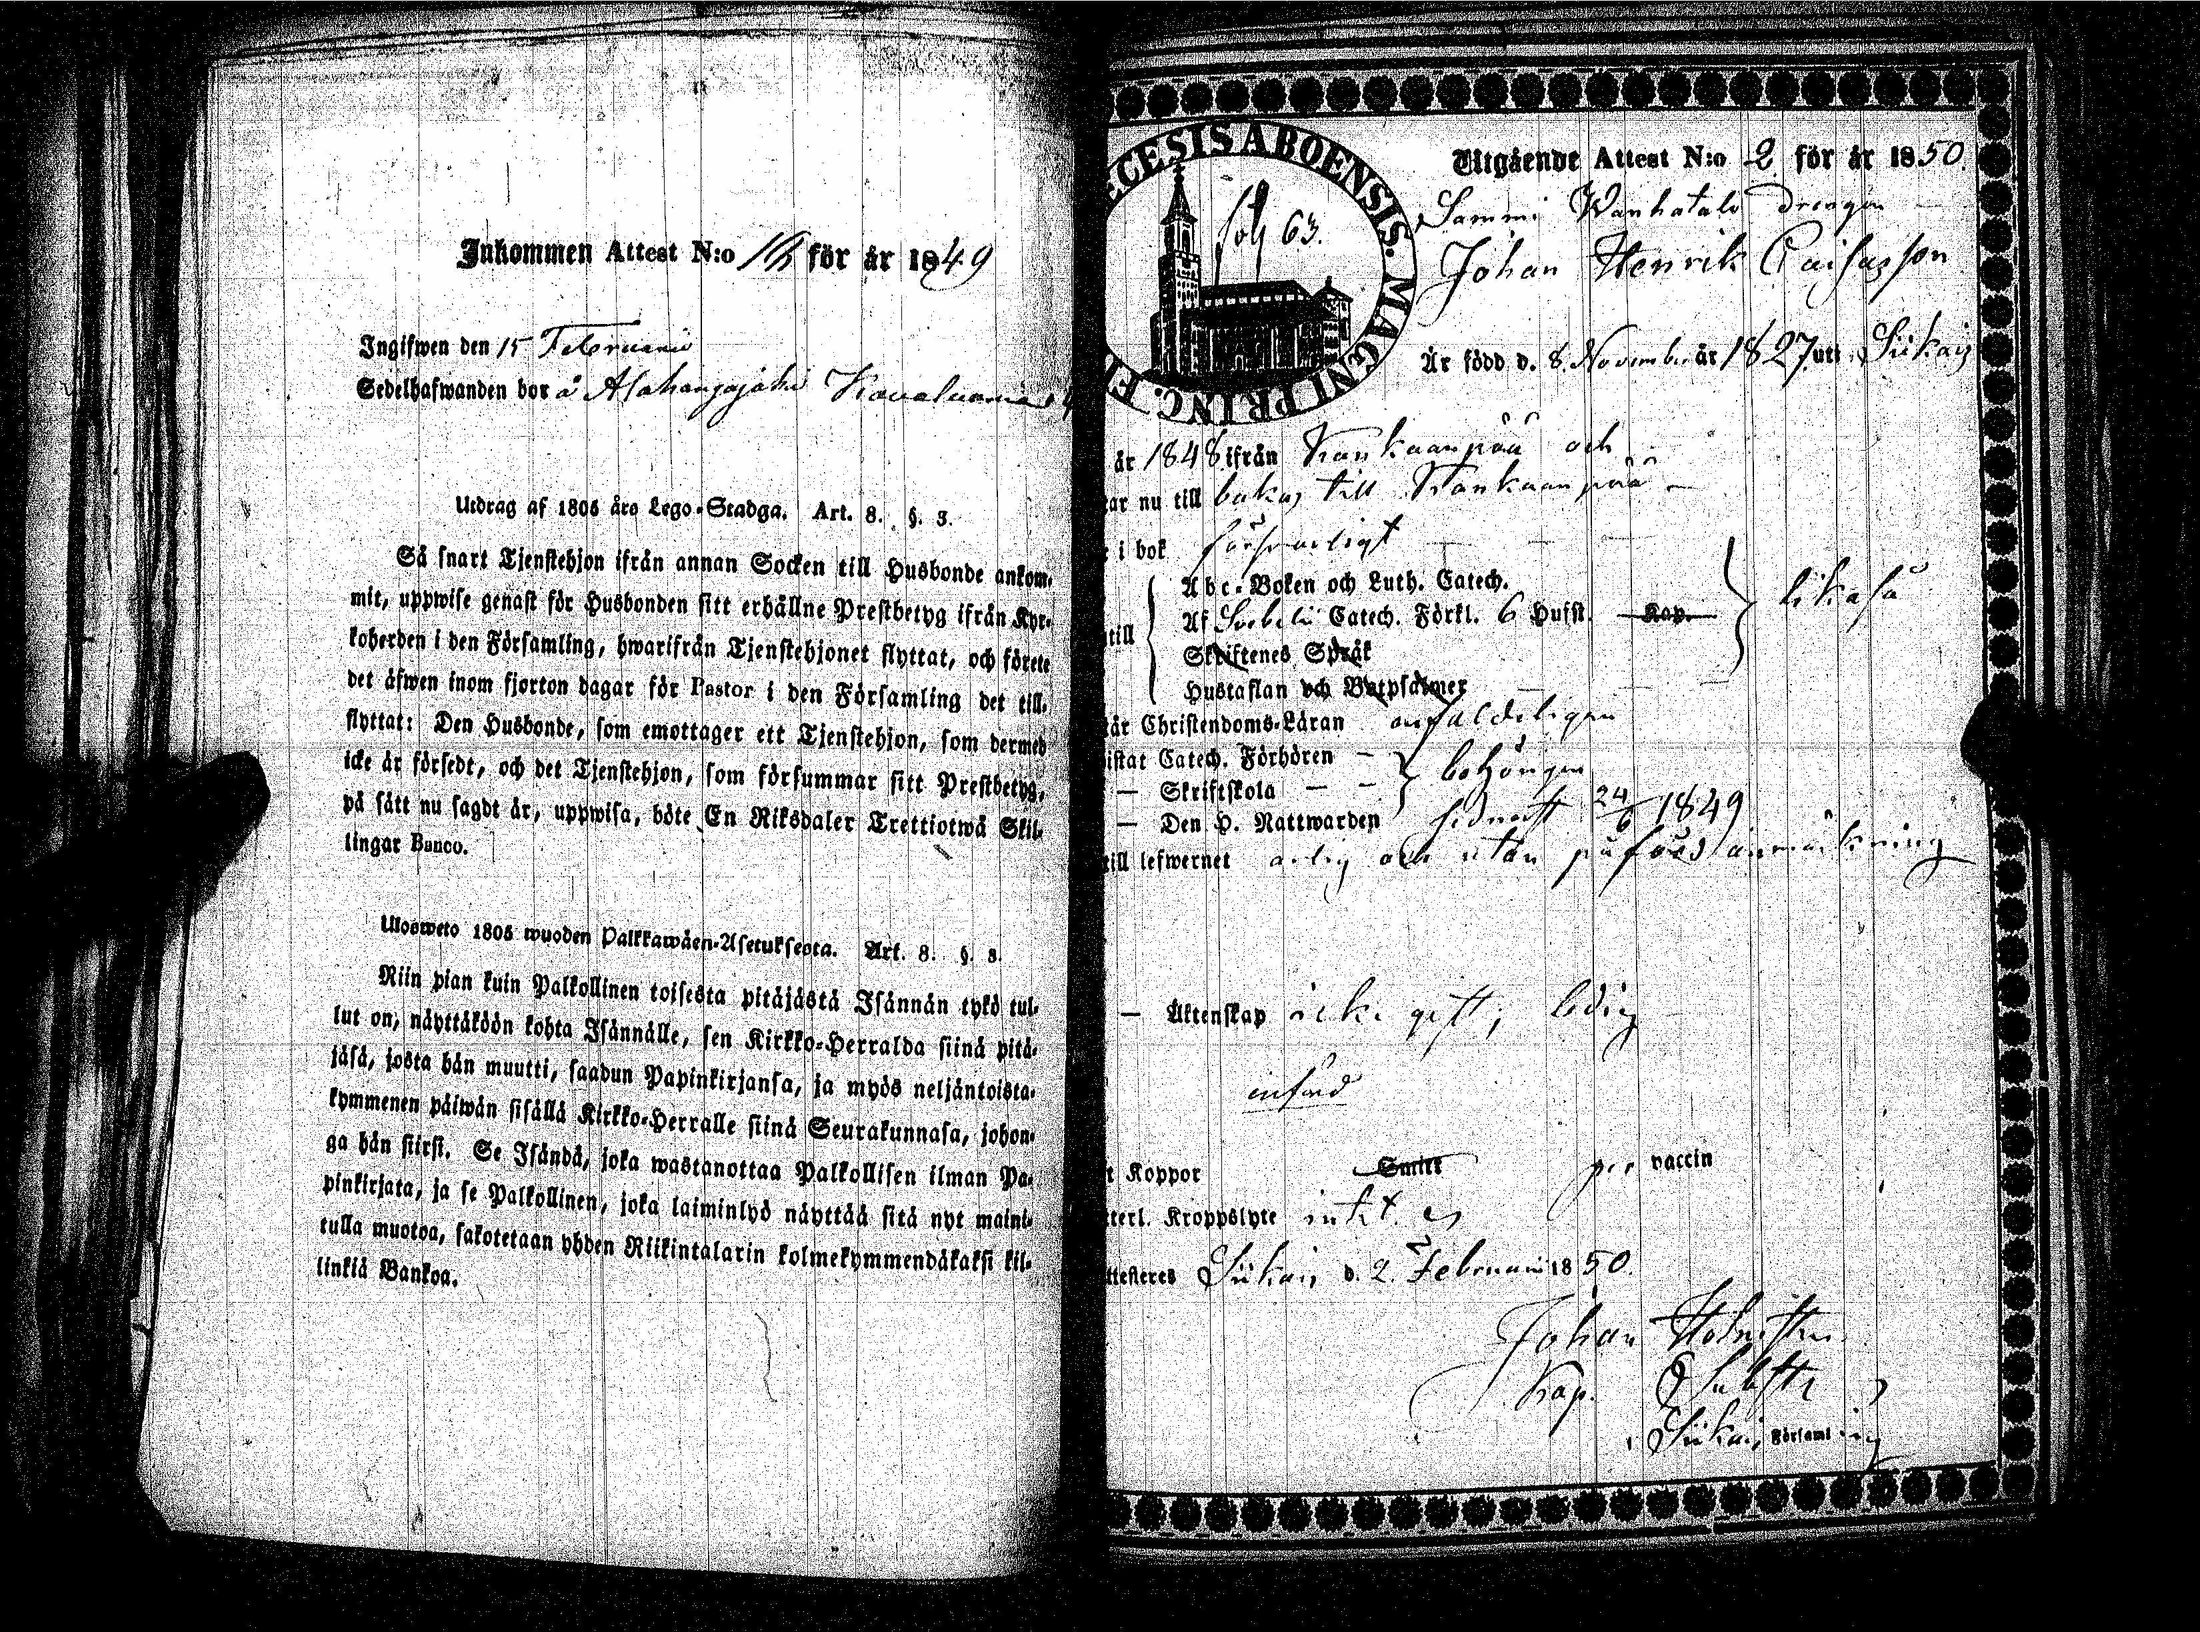 Inkommen Attest N:o för år 1849
Ingifwen den 15 Februarii
Sedelhafwanden bor å Alahongajoki
Utdrag af 1805 års Lego-Stadga. Art. 8. §. 3.
Så snart Tjenstehjon ifrån annan Socken till Husbonde ankom-
mit, uppwise genast för Husbonden sitt erhållne Prestbetyg ifrån Kyr-
koherden i den Församling, hwarifrån Tjenstehjonet flyttat, och förete
det äfwen inom fjorton dagar för Pastor i den Församling det till-
flyttat: Den Husbonde, som emottager ett Tjenstehjon, som dermed
icke är försedt, och det Tjenstehjon, som försummar sitt Prestbetyg,
på sätt nu sagdt är, uppwisa, böte En Riksdaler Trettiotwå Skil-
lingar Banco.
Ulosweto 1805 wuoden Palkkawäen-Asetuksesta. Art. 8. §. 3.
Niin pian kuin Palkollinen toisesta pitäjästä Isännän tykö tul-
lut on, näyttäköön kohta Isännälle, sen Kirkko-Herralda siinä pitä-
jäsä, josta hän muutti, saadun Papinkirjansa, ja myös neljäntoista-
kymmenen päiwän sisällä Kirkko-Herralle siinä Seurakunnasa, johon-
ga hän siirsi. Se Isändä, joka wastanottaa Palkollisen ilman Pa-
pinkirjata, ja se Palkollinen, joka laiminlyö näyttää sitä nyt maini-
tulla muotoa, sakotetaan yhden Riikintalarin kolmekymmendäkaksi kil-
linkiä Bankoa.
ECESIS ABOENSIS. MAGNI PRINC. FI
fol 63.
Utgående Attest N:o 2 för år 1850.
Sammi Wanhatalo drengen
Johan Henrik
Är född d. 8 November år 1827 uti Siikais
år 1848 ifrån Kankaanpää och
ar nu till bakas till Kankaanpää
i bok försvarligt
Abc-Boken och Luth. Catech.
Af Svebelii Catech. Förkl. 6 Hufst. Kap. likaså
till
Skriftenes Språk
Hustaflan och Botpsalmer
år Christendoms-Läran enfaldeligen
istat Catech. Förhören
— Skriftskola — behörigen
— Den H. Nattwarden sednast 24/6 1849
till lefwernet ärlig och utan påförd anmärkning
— Äktenskap icke gift, ledig
införd
t Koppor Smitt per vaccin
tterl. Kroppslyte intet
ttesteres Siikais d. 2 Februarii 1850.
Johan
Kap. Substit
i Siikais Församling